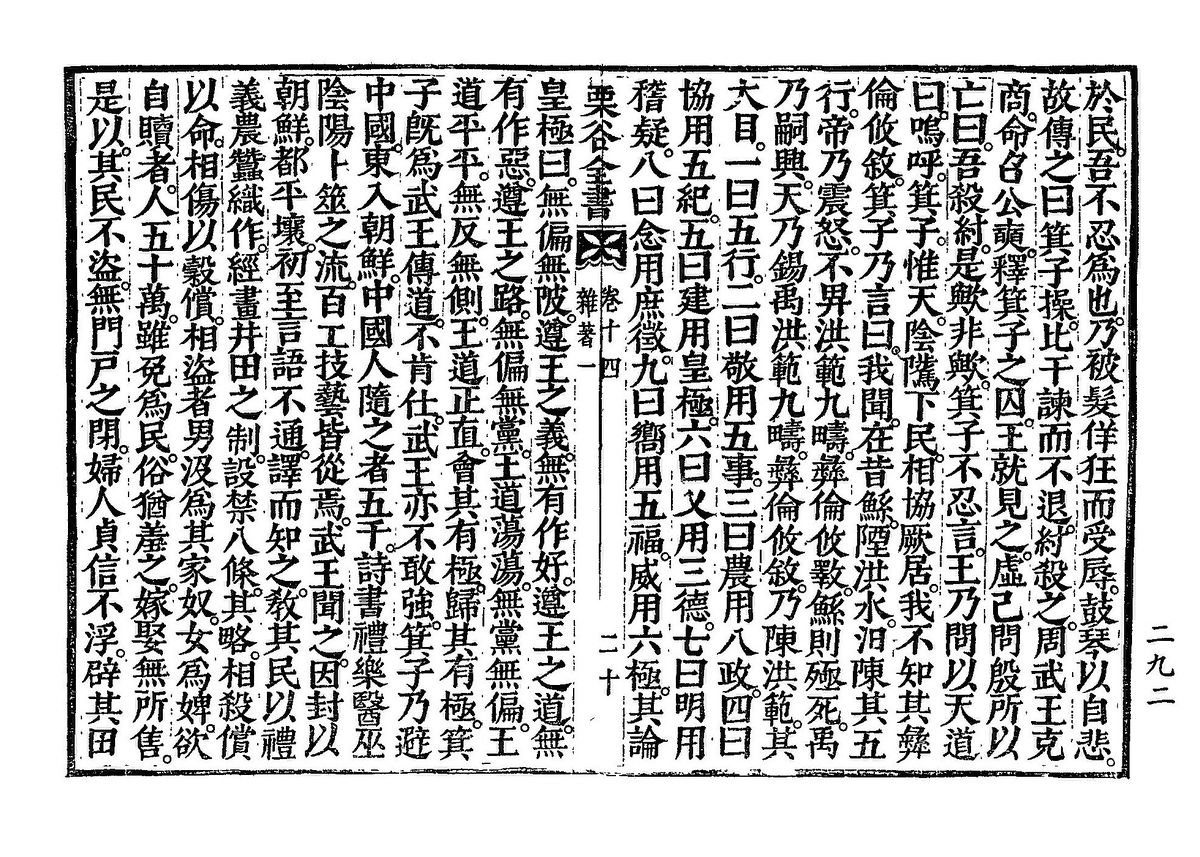 於民吾不忍爲也乃被髮佯狂而受辱。鼓琴以自悲。
故傳之曰箕子操。比干諫而不退。紂殺之。周武王克
商。命召公奭。釋箕子之囚。王就見之。虛己問殷所以
亡曰。吾殺紂。是歟非歟。箕子不忍言。王乃問以天道
曰。嗚呼。箕子。惟天。陰騭下民。相協厥居。我不知其彝
倫攸敘。箕子乃言曰。我聞。在昔鯀。陻洪水。汩陳其五
行。帝乃震怒。不畀洪範九疇。彝倫攸斁。鯀則殛死。禹
乃嗣興。天乃錫禹洪範九疇。彝倫攸敘。乃陳洪範。其
大目。一曰五行。二曰敬用五事。三曰農用八政。四曰
協用五紀。五曰建用皇極。六曰乂用三德。七曰明用
稽疑。八曰念用庶徵。九曰嚮用五福。威用六極。其論
栗谷全書 卷十四 雜著一 二十
皇極曰。無偏無陂。遵王之義。無有作好。遵王之道。無
有作惡。遵王之路。無偏無黨。王道蕩蕩。無黨無偏。王
道平平。無反無側。王道正直。會其有極。歸其有極。箕
子旣爲武王傳道。不肯仕。武王亦不敢強。箕子乃避
中國。東入朝鮮。中國人隨之者五千。詩書禮樂醫巫
陰陽卜筮之流。百工技藝。皆從焉。武王聞之。因封以
朝鮮。都平壤。初至言語不通。譯而知之。敎其民以禮
義農蠶織作。經畫井田之制。設禁八條。其略。相殺償
以命。相傷以穀償。相盜者男沒爲其家奴。女爲婢。欲
自贖者。人五十萬。雖免爲民。俗猶羞之。嫁娶無所售。
是以。其民不盜。無門戶之閉。婦人貞信不浮。辟其田
二九二